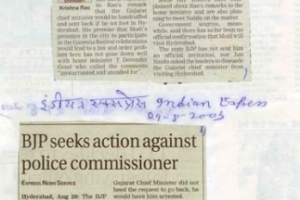 in Rao's remark
that the Gujarat
chief minister would be handcuffed
and sent back if he set foot in Hy-
derabad, the premise that Modi's
presence in the city to participate
in the Ganesha festival celebrations
would lead to a law and order prob-
lem here has not gone down well
with home minister T Devender
Goud who called the comments
"unwarranted and uncalled for".
Krishna Rao
about Rao's remarks to the
home minister and are also plan-
ning to meet Naidu on the matter.
Government sources, mean-
while, said there has so far been no
official confirmation that Modi will
visit Hyderabad.
The state BJP has not sent him
an official invitation, nor has
Naidu asked the leaders to dissuade
the Gujarat chief minister from
visiting Hyderabad.
Indian Express
29-8-2003
BJP seeks action against
police commissioner
EXPRESS NEWS SERVICE
Hyderabad, Aug 28: The BJP
Gujarat Chief Minister did not
heed the request to go back, he
would have him arrested.